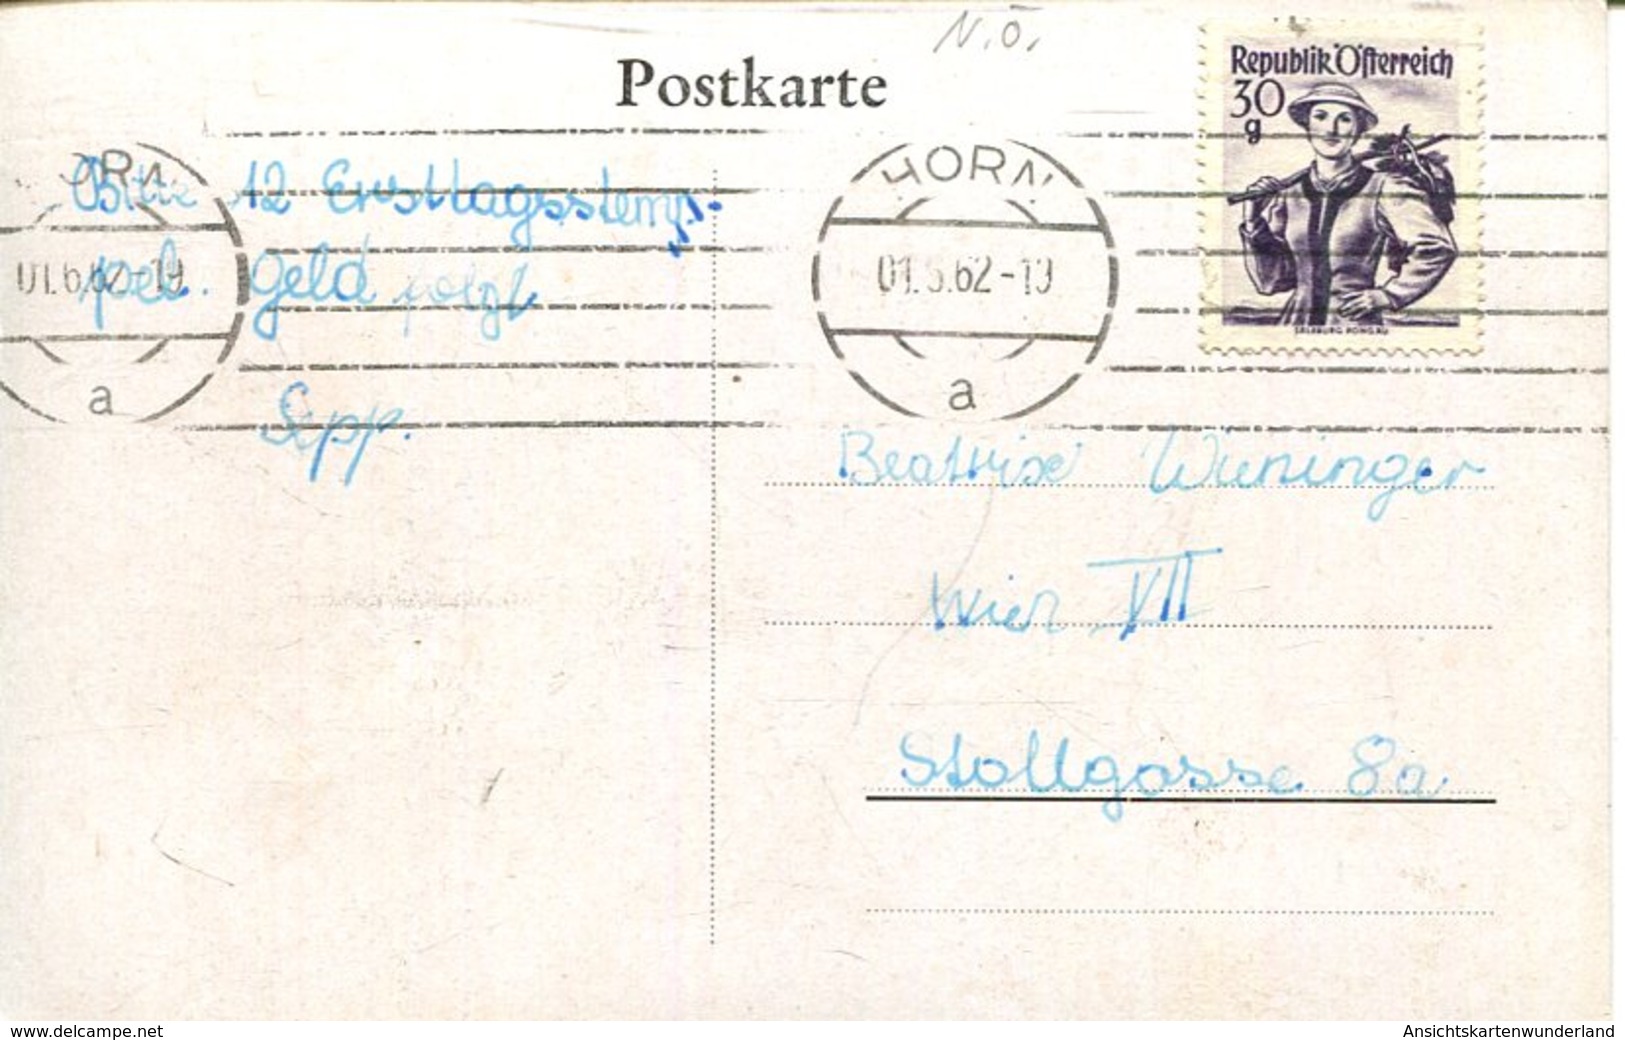 N.Ö.
Postkarte
Republik Österreich
30
g
SALZBURG PONGAU
HORN
01.6.62-19
a
HORN
01.6.62-19
a
Bitte 12 Ersttagsstemp-
pel. Geld folgt
Sepp.
Beatrix Wieninger
Wien VII
Stollgasse 8a
www.delcampe.net
Ansichtskartenwunderland